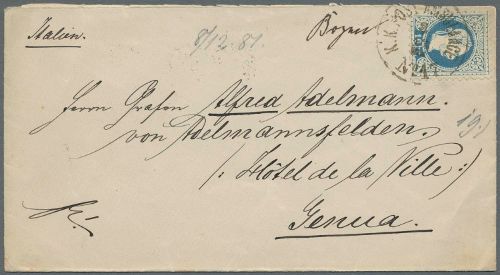 Italien.
8/12.81.
K.K. POST
Herrn Grafen Alfred Adelmann.
von Adelmannsfelden.
19.)
(: Hôtel de la Ville :)
Genua.